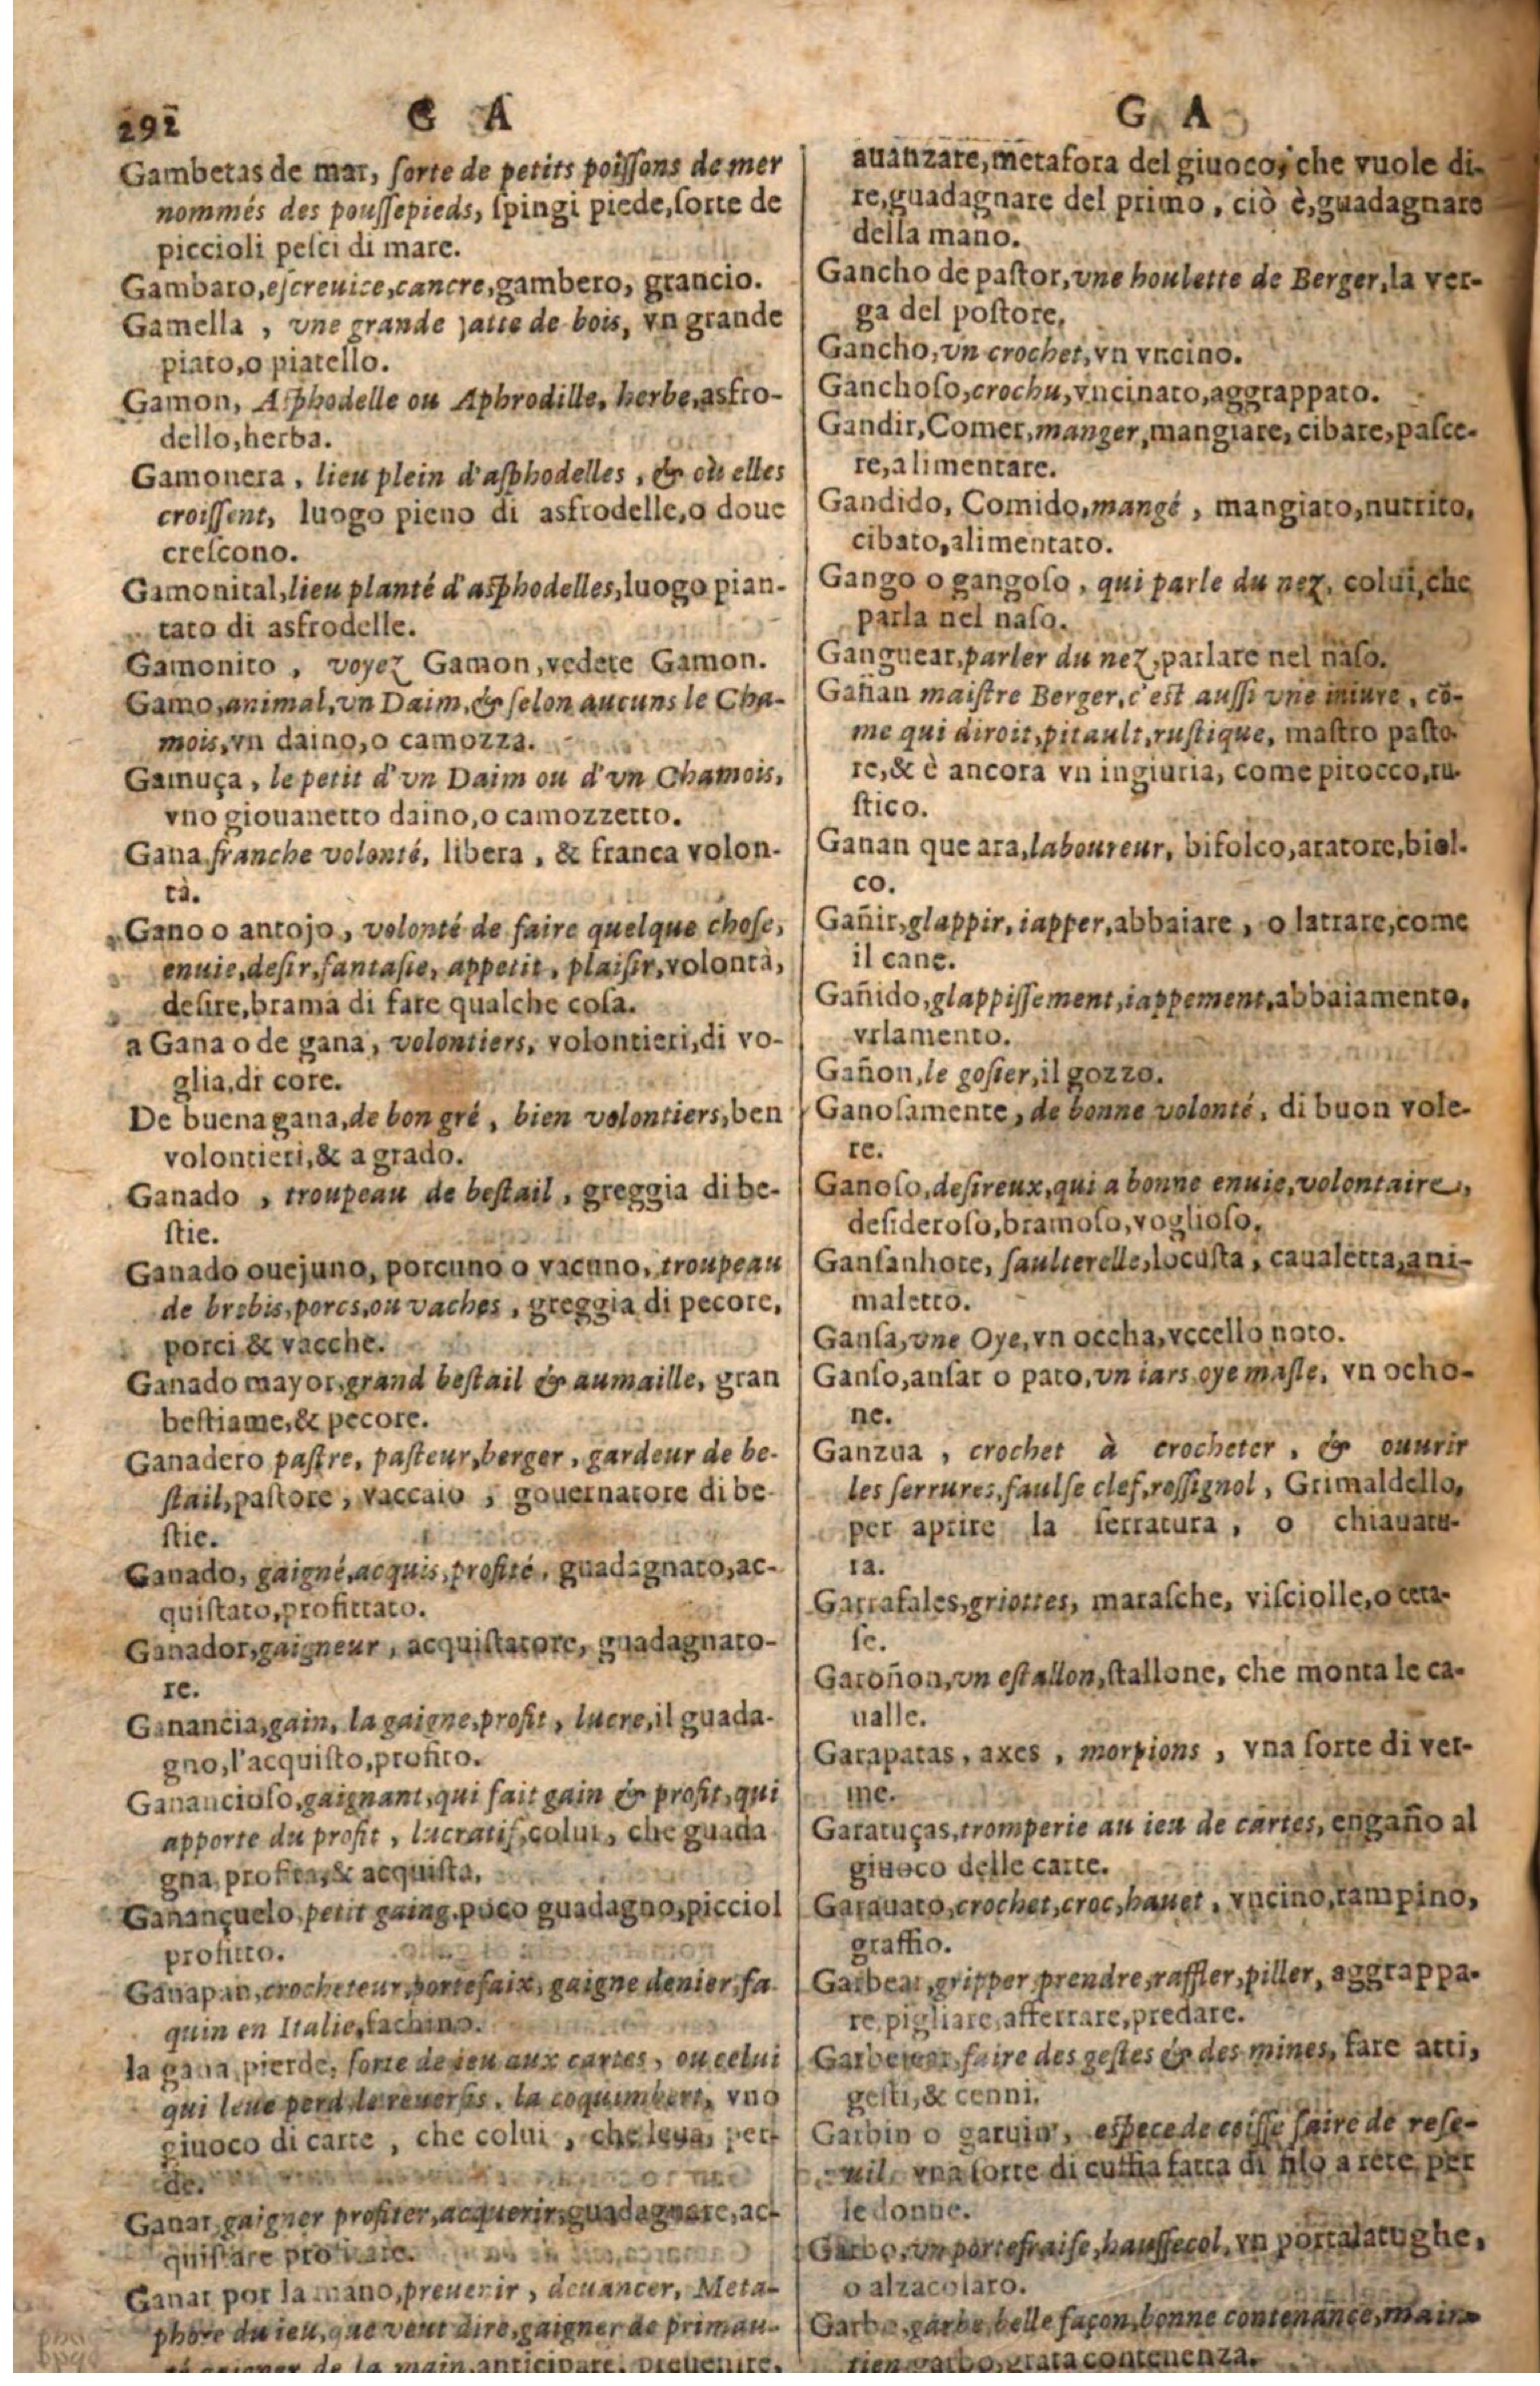 292 G A
Gambetas de mar, ſorte de petits poiſſons de mer
nommés des pouſſepieds, ſpingi piede, ſorte de
piccioli peſci di mare.
Gambaro, eſcreuice, cancre, gambero, grancio.
Gamella, vne grande jatte de bois, vn grande
piato, o piatello.
Gamon, Aſphodelle ou Aphrodille, herbe, asfro-
dello, herba.
Gamonera, lieu plein d'aſphodelles, & où elles
croiſſent, luogo pieno di asfrodelle, o doue
creſcono.
Gamonital, lieu planté d'aſphodelles, luogo pian-
tato di asfrodelle.
Gamonito, voyez Gamon, vedete Gamon.
Gamo, animal, vn Daim, & ſelon aucuns le Cha-
mois, vn daino, o camozza.
Gamuça, le petit d'vn Daim ou d'vn Chamois,
vno giouanetto daino, o camozzetto.
Gana franche volonté, libera, & franca volon-
tà.
Gano o antojo, volonté de faire quelque choſe,
enuie, deſir, fantaſie, appetit, plaiſir, volontà,
deſire, brama di fare qualche coſa.
a Gana o de gana, volontiers, volontieri, di vo-
glia, di core.
De buena gana, de bon gré, bien volontiers, ben
volontieri, & a grado.
Ganado, troupeau de beſtail, greggia di be-
ſtie.
Ganado ouejuno, porcuno o vacuno, troupeau
de brebis, porcs, ou vaches, greggia di pecore,
porci & vacche.
Ganado mayor, grand beſtail & aumaille, gran
beſtiame, & pecore.
Ganadero paſtre, paſteur, berger, gardeur de be-
ſtail, paſtore, vaccaio, gouernatore di be-
ſtie.
Ganado, gaigné, acquis, profité, guadagnato, ac-
quiſtato, profittato.
Ganador, gaigneur, acquiſtatore, guadagnato-
re.
Ganancia, gain, la gaigne, profit, lucre, il guada-
gno, l'acquiſto, profito.
Ganancioſo, gaignant, qui fait gain & profit, qui
apporte du profit, lucratif, colui, che guada
gna, profita, & acquiſta.
Ganançuelo, petit gaing, poco guadagno, picciol
profitto.
Ganapan, crocheteur, portefaix, gaigne denier, fa
quin en Italie, fachino.
la gana pierde, ſorte de ieu aux cartes, ou celui
qui leue perd, le reuerſis, la coquimbert, vno
giuoco di carte, che colui, che leua, per-
de.
Ganar, gaigner profiter, acquerir, guadagnare, ac-
quiſtare
Ganar por la mano, preuenir, deuancer, Meta-
phore du ieu, que veut dire, gaigner de primau-
de la main, anticipare, preuenire,
G A
auanzare, metafora del giuoco, che vuole di-
re, guadagnare del primo, ciò è, guadagnare
della mano.
Gancho de paſtor, vne houlette de Berger, la ver-
ga del poſtore.
Gancho, vn crochet, vn vncino.
Ganchoſo, crochu, vncinato, aggrappato.
Gandir, Comer, manger, mangiare, cibare, paſce-
re, alimentare.
Gandido, Comido, mangé, mangiato, nutrito,
cibato, alimentato.
Gango o gangoſo, qui parle du nez, colui, che
parla nel naſo.
Ganguear, parler du nez, parlare nel naſo.
Gañan maiſtre Berger, c'eſt auſſi vne iniure, cõ-
me qui diroit, pitault, ruſtique, maſtro paſto-
re, & è ancora vn ingiuria, come pitocco, ru-
ſtico.
Ganan que ara, laboureur, bifolco, aratore, biol-
co.
Gañir, glappir, iapper, abbaiare, o latrare, come
il cane.
Gañido, glappiſſement, iappement, abbaiamento,
vrlamento.
Gañon, le goſier, il gozzo.
Ganoſamente, de bonne volonté, di buon vole-
re.
Ganoſo, deſireux, qui a bonne enuie, volontaire,
deſideroſo, bramoſo, voglioſo.
Ganſanhote, ſaulterelle, locuſta, caualetta, ani-
maletto.
Ganſa, vne Oye, vn occha, vccello noto.
Ganſo, anſar o pato, vn iars oye maſle, vn ocho-
ne.
Ganzua, crochet à crocheter, & ouurir
les ſerrures, faulſe clef, roſſignol, Grimaldello,
per aprire la ſerratura, o chiauatu-
ra.
Garrafales, griottes, maraſche, viſciolle, o cera-
ſe.
Garoñon, vn eſtallon, ſtallone, che monta le ca-
ualle.
Garapatas, axes, morpions, vna ſorte di ver-
me.
Garatuças, tromperie au ieu de cartes, engaño al
giuoco delle carte.
Garauato, crochet, croc, hauet, vncino, rampino,
graffio.
Garbear, gripper prendre, raffler, piller, aggrappa-
re, pigliare, afferrare, predare.
faire des geſtes & des mines, fare atti,
geſti, & cenni.
Garbin o garuin, eſpece de coiffe faire de reſe-
uil, vna ſorte di cuffia fatta di filo a rete, per
le donne.
Garbo, vn portefraiſe, hauſſecol, vn portalatughe,
o alzacolaro.
Garbo, garbe, belle façon, bonne contenance, main-
tien, garbo, grata contenenza.